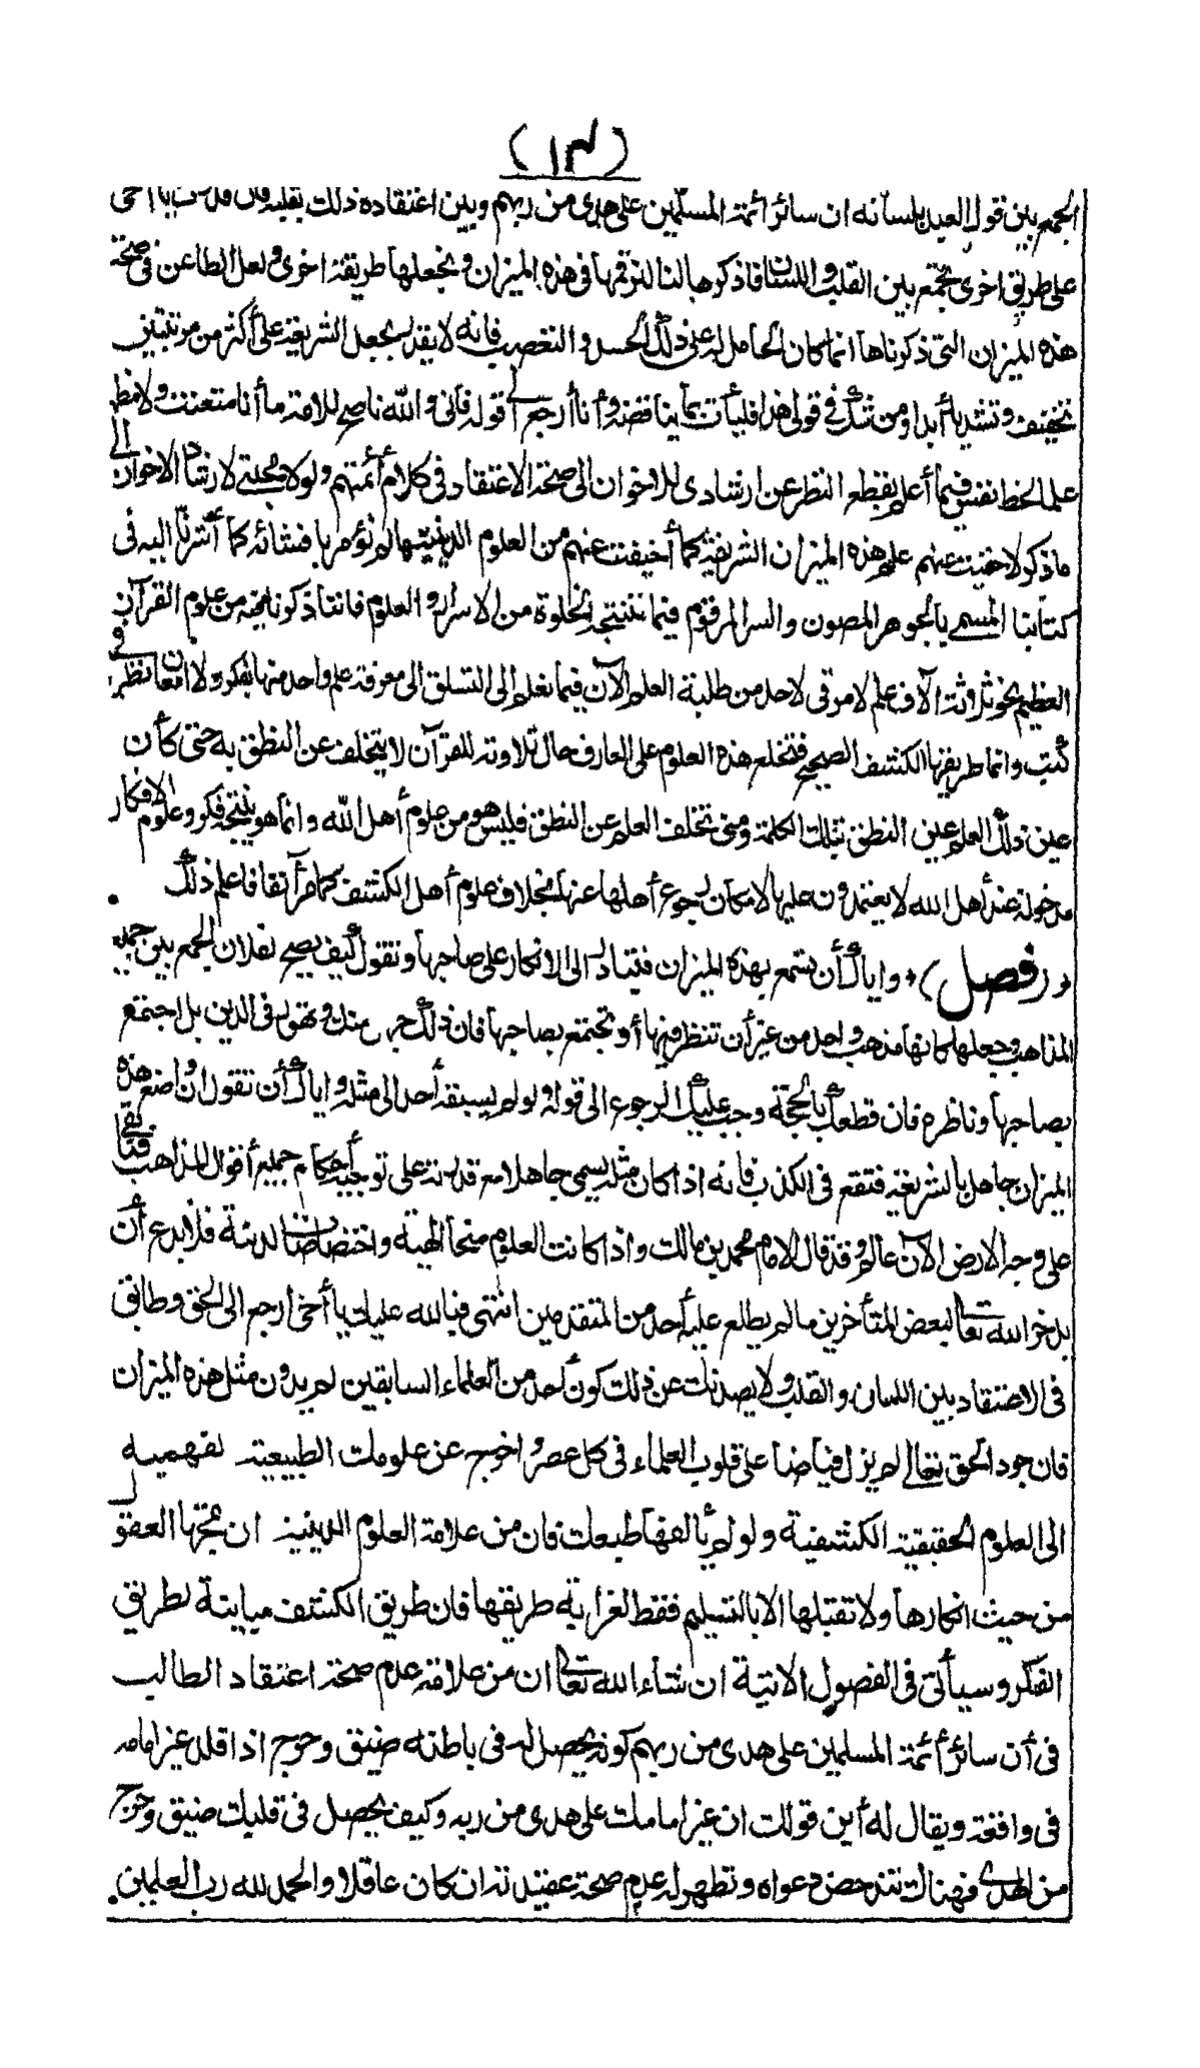 (١٣)
الجمع بين قول العبد بلسانه ان سائر ائمة المسلمين على هدى من ربهم وبين اعتقاده ذلك بقلبه فان قدرت يا أخى
على طريق اخرى تجمع بين القلب واللسان فاذكرها لنا لنرقمها فى هذه الميزان ونجعلها طريقة اخرى ولعل الطاعن فى صحة
هذه الميزان التى ذكرناها انما كان الحامل له على ذلك الحسد والتعصب فانه لا يقدر يجعل الشريعة على أكثر من مرتبتين
تخفيف وتشديد أبدا ومن شك فى قولى هذا فليأت بما يناقضه وأنا أرجع الى قوله فانى والله ناصح للامة ما أنا متعنت ولا مظهر
علما لحظ نفسى فيما أعلم بقطع النظر عن ارشادى للاخوان الى صحة الاعتقاد فى كلام أئمتهم ولولا محبتى لارشاد الاخوان الى
ماذكر لاخفيت عنهم علم هذه الميزان الشريفة كما أخفيت عنهم من العلوم اللدنية مالم نؤمر بافشائه كما أشرنا اليه فى
كتابنا المسمى بالجوهر المصون والسر المرقوم فيما تنتجه الخلوة من الاسرار والعلوم فاننا ذكرنا فيه من علوم القرآن
العظيم نحو ثلاثة آلاف علم لا مرقى لاحد من طلبة العلم الآن فيما نعلم الى التسلق الى معرفة علم واحد منها بفكر ولا امعان نظر فى
كتب وانما طريقها الكشف الصحيح فتخلع هذه العلوم على العارف حال تلاوته للقرآن لا يتخلف عن النطق به حتى كأن
عين ذلك العلم عين النطق بتلك الكلمة ومتى تخلف العلم عن النطق فليس هو من علوم أهل الله وانما هو نتيجة فكر وعلوم الافكار
مدخولة عند أهل الله لا يعتمدون عليها لامكان رجوع أهلها عنها بخلاف علوم أهل الكشف كما مر آنفا فاعلم ذلك .
(فصل) وإياك أن تسمع بهذه الميزان فتبادر الى الانكار على صاحبها وتقول كيف يصح لفلان الجمع بين جميع
المذاهب وجعلها كأنها مذهب واحد من غير أن تنظر فيها أو تجتمع بصاحبها فان ذلك جهل منك وتهور فى الدين بل اجتمع
بصاحبها وناظره فان قطعك بالحجة وجب عليك الرجوع الى قوله ولو لم يسبقه أحد الى مثله واياك أن تقول ان واضع هذه
الميزان جاهل بالشريعة فتقع فى الكذب فانه اذا كان مثله يسمى جاهلا مع قدرته على توجيه أحكام جميع أقوال المذاهب فما بقى
على وجه الارض الآن عالم وقد قال الامام محمد بن مالك واذا كانت العلوم منحا الهية واختصاصات لدنية فلا بدع أن
يدخر الله تعالى لبعض المتأخرين مالم يطلع عليه أحد من المتقدمين انتهى فبالله عليك يا أخى ارجع الى الحق وطابق
فى الاعتقاد بين اللسان والقلب ولا يصدنك عن ذلك كون أحد من العلماء السابقين لم يدون مثل هذه الميزان
فان جود الحق تعالى لم يزل فياضا على قلوب العلماء فى كل عصر واخرج عن علومك الطبيعية الفهمية
الى العلوم الحقيقية الكشفية ولو لم يألفها طبعك فان من علامة العلوم اللدنية ان تمجها العقول
من حيث افكارها ولا تقبلها الا بالتسليم فقط لغرابة طريقها فان طريق الكشف مباينة لطريق
الفكر وسيأتى فى الفصول الاتية ان شاء الله تعالى ان من علامة عدم صحة اعتقاد الطالب
فى أن سائر أئمة المسلمين على هدى من ربهم كونه يحصل له فى باطنه ضيق وحرج اذا قلد غير امامه
فى واقعة ويقال له أين قولك ان غير امامك على هدى من ربه وكيف يحصل فى قلبك ضيق وحرج
من الهدى فهناك تندحض دعواه وتظهر له عدم صحة عقيدته ان كان عاقلا والحمد لله رب العلمين .